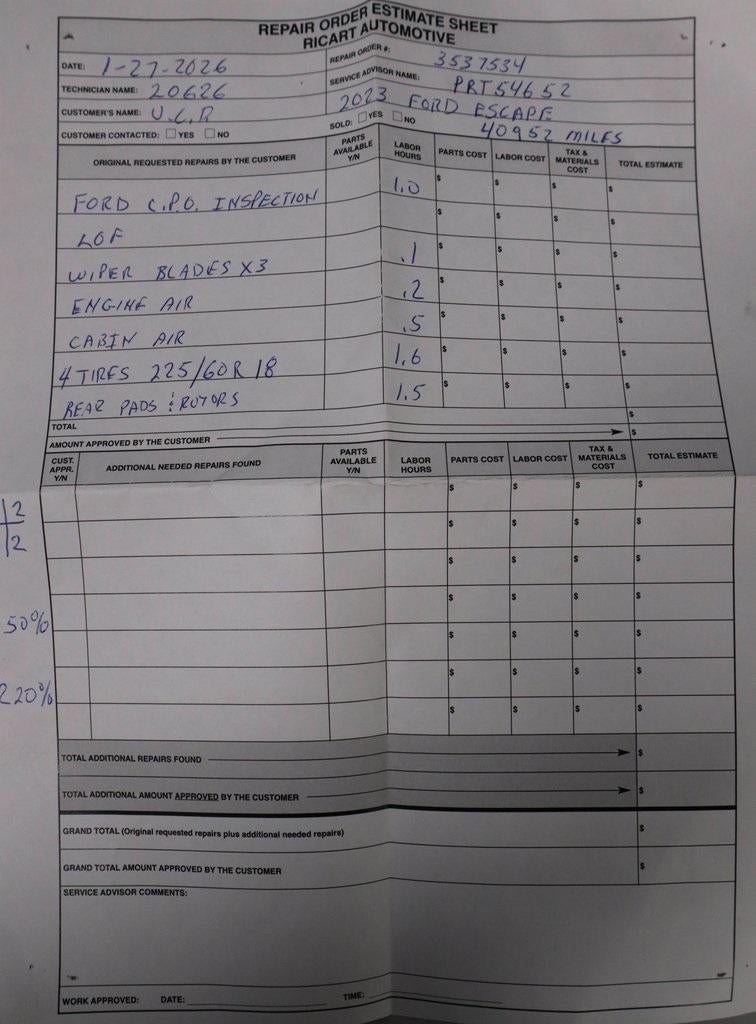 REPAIR ORDER ESTIMATE SHEET
RICART AUTOMOTIVE
DATE: 1-27-2026 REPAIR ORDER #: 3537534
TECHNICIAN NAME: 20626 SERVICE ADVISOR NAME: PRT54652
CUSTOMER'S NAME: U.C.R 2023 FORD ESCAPE
CUSTOMER CONTACTED: ☐ YES ☐ NO SOLD: ☐ YES ☐ NO 40952 MILES
ORIGINAL REQUESTED REPAIRS BY THE CUSTOMER PARTS AVAILABLE Y/N LABOR HOURS PARTS COST LABOR COST TAX & MATERIALS COST TOTAL ESTIMATE
FORD C.P.O. INSPECTION 1.0 $ $ $ $
LOF $ $ $ $
WIPER BLADES X3 .1 $ $ $ $
ENGINE AIR .2 $ $ $ $
CABIN AIR .5 $ $ $ $
4 TIRES 225/60R18 1.6 $ $ $ $
REAR PADS & ROTORS 1.5 $ $ $ $
TOTAL $
AMOUNT APPROVED BY THE CUSTOMER $
CUST. APPR. Y/N ADDITIONAL NEEDED REPAIRS FOUND PARTS AVAILABLE Y/N LABOR HOURS PARTS COST LABOR COST TAX & MATERIALS COST TOTAL ESTIMATE
$ $ $ $
12 $ $ $ $
12 $ $ $ $
$ $ $ $
50% $ $ $ $
220% $ $ $ $
$ $ $ $
TOTAL ADDITIONAL REPAIRS FOUND $
TOTAL ADDITIONAL AMOUNT APPROVED BY THE CUSTOMER $
GRAND TOTAL (Original requested repairs plus additional needed repairs) $
GRAND TOTAL AMOUNT APPROVED BY THE CUSTOMER $
SERVICE ADVISOR COMMENTS:
WORK APPROVED: DATE: TIME: